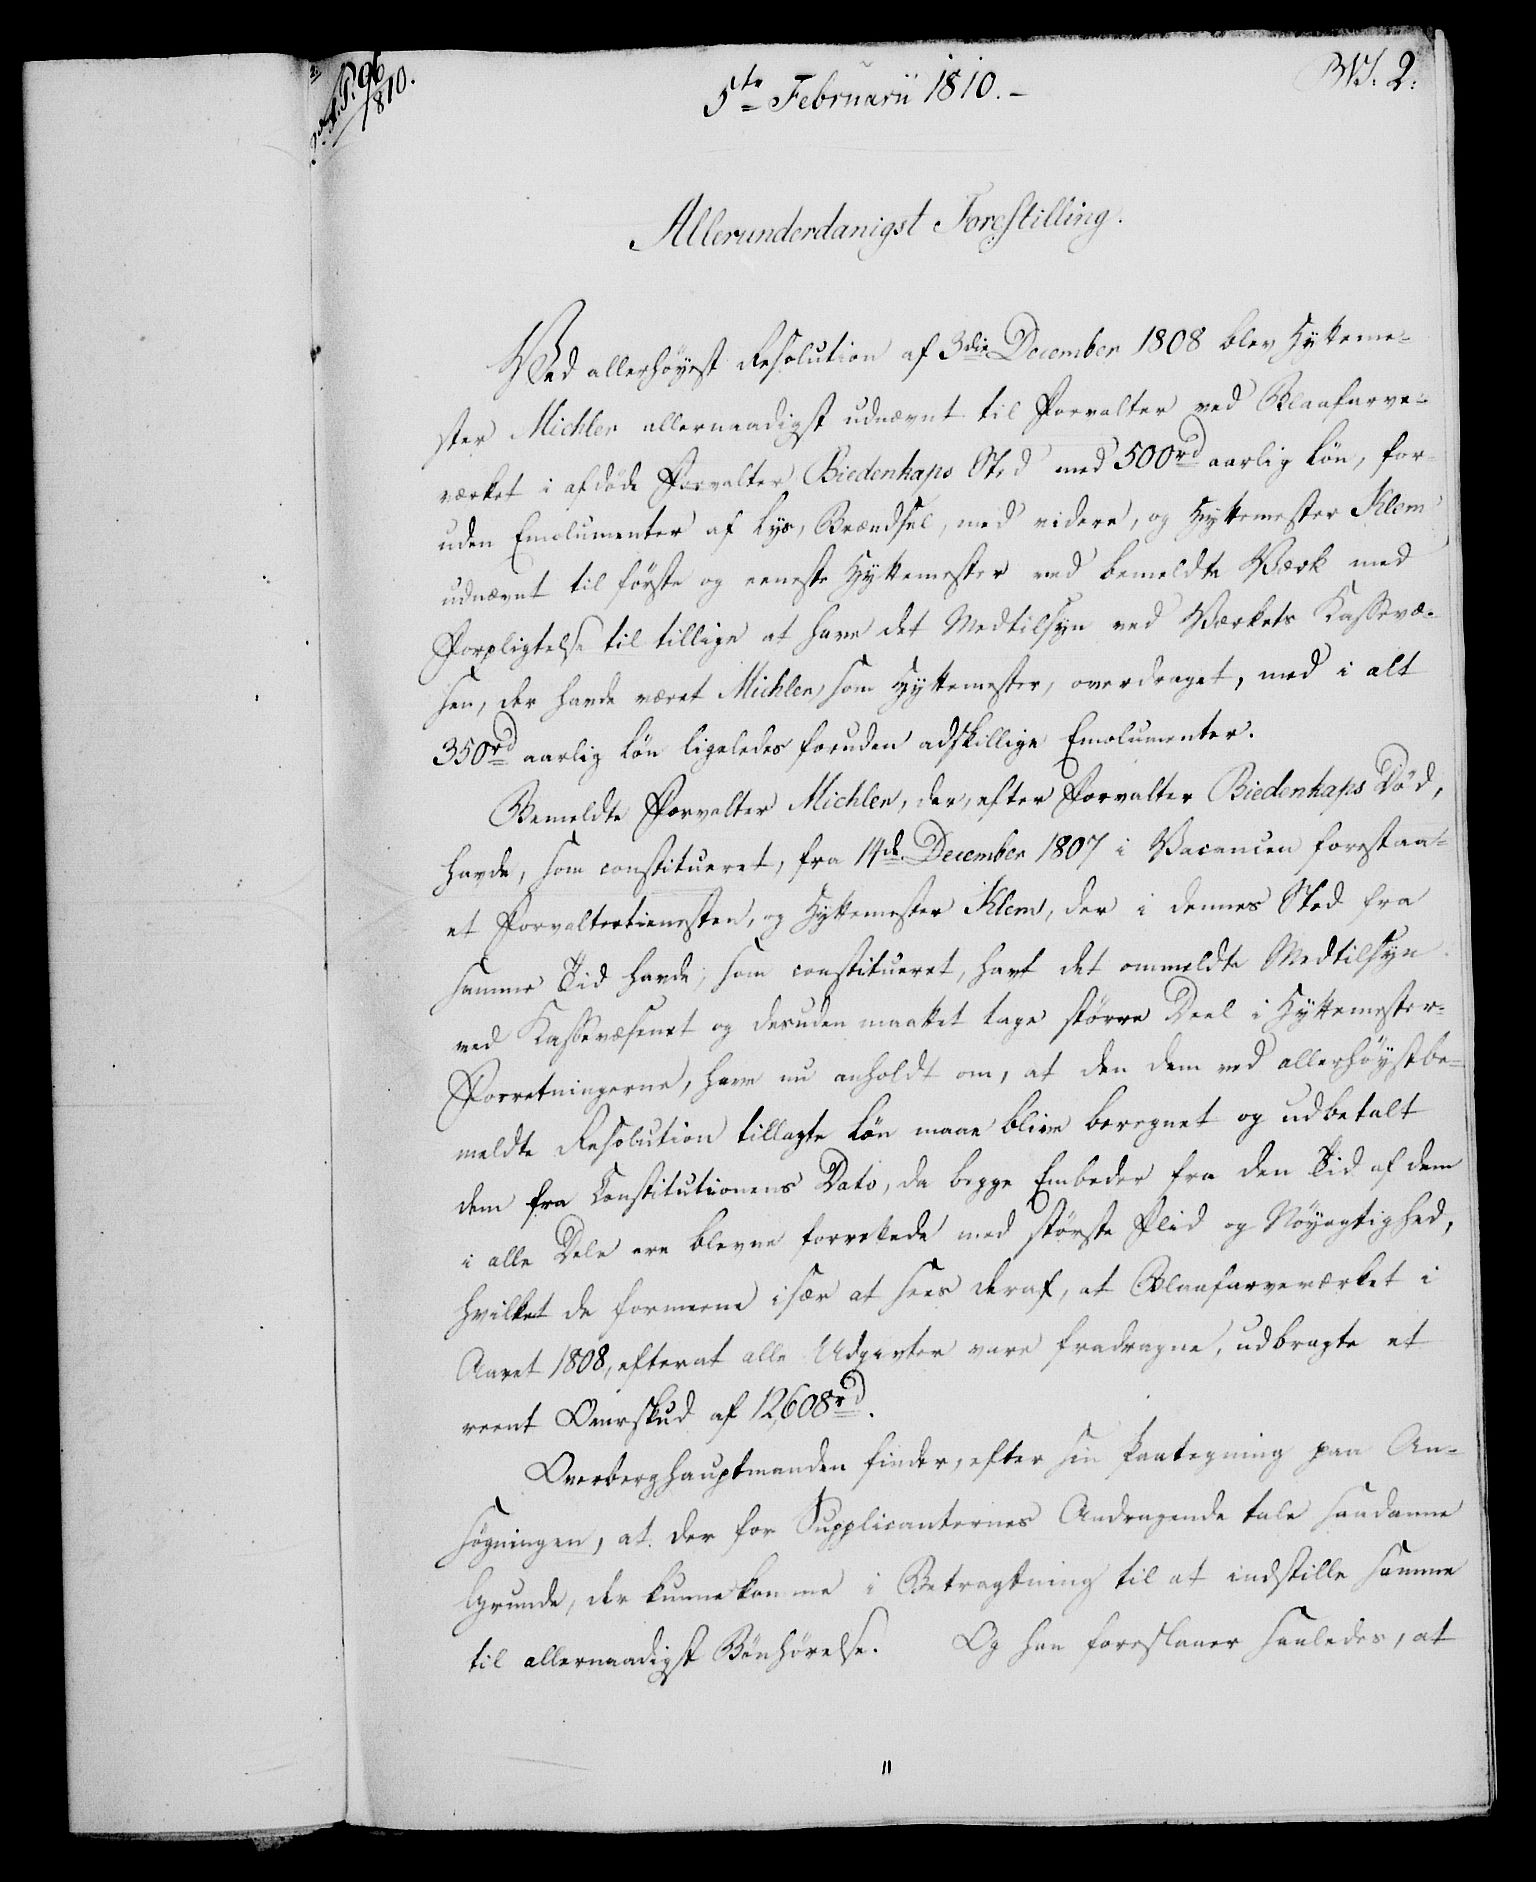 96
1810.
5te Februarii 1810.-
No. 2.
Allerunderdanigst Forestilling.
Ved allerhöyest Resolution af 3die December 1808 blev Hytteme-
ster Michler allernaadigst udnævnt til Forvalter ved Blaafarve-
værket i afdöde Forvalter Biedenkaps Sted med 500rd aarlig Lön, for-
uden Emolumenter af Lys, Brændsel, med videre, og Hyttemester Klem
udnævnt til förste og eeneste Hyttemester ved bemeldte Værk med
Forpligtelse til tillige at have det Medtilsyn ved Værkets Kassevæ-
sen, der havde været Michler, som Hyttemester, overdraget, med i alt
350rd aarlig Lön ligeledes foruden adskillige Emolumenter.
Bemeldte Forvalter Michler, der, efter Forvalter Biedenkaps Död,
havde, som constitueret, fra 14de December 1807 i Vacancen forestaa-
et Forvaltertienesten, og Hyttemester Klem, der i dennes Sted fra
samme Tid havde, som constitueret, havt det ommeldte Medtilsyn
ved Kassevæsenet og desuden maattet tage större Deel i Hyttemester-
Forretningerne, have nu anholdt om, at den dem ved allerhöystbe-
meldte Resolution tillagte Lön maae blive beregnet og udbetalt
dem fra Constitutionens Dato, da begge Embeder fra den Tid af dem
i alle Dele ere blevne forrettede med störste Flid og Nöyagtighed,
hvilket de formeene især at sees deraf, at Blaafarveværket i
Aaret 1808, efterat alle Udgivter vare fradragne, udbragte et
reent Overskud af 12,608rd.
Overberghauptmanden finder, efter sin Paategning paa An-
sögningen, at der for Supplicanternes Andragende tale saadanne
Grunde, der kunne komme i Betragtning til at indstille samme
til allernaadigst Bönhörelse. Og han foreslaaer saaledes, at